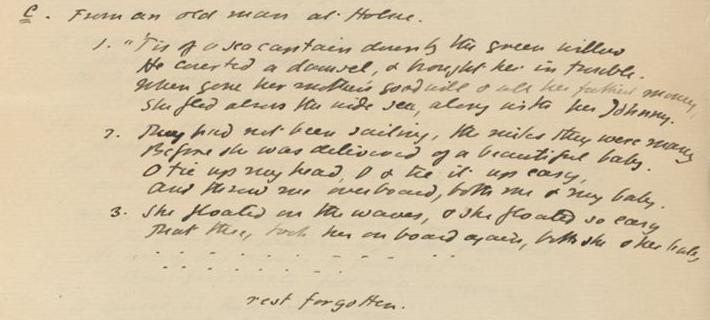 C. From an old man at Holne.
1. "'Tis of a sea captain down by the green willow
He courted a damsel, & brought her in trouble.
When gone her mother's good will & all her father's money,
She fled across the wide sea, along with her Johnny.
2. They had not been sailing, the miles they were many
Before she was delivered of a beautiful baby.
O tie up my head, O & tie it up easy,
And throw me overboard, both me & my baby.
3. She floated on the waves, & she floated so easy
That they took her on board again, both she & her baby
. . . . . . . . . .
. . . . . .
rest forgotten.